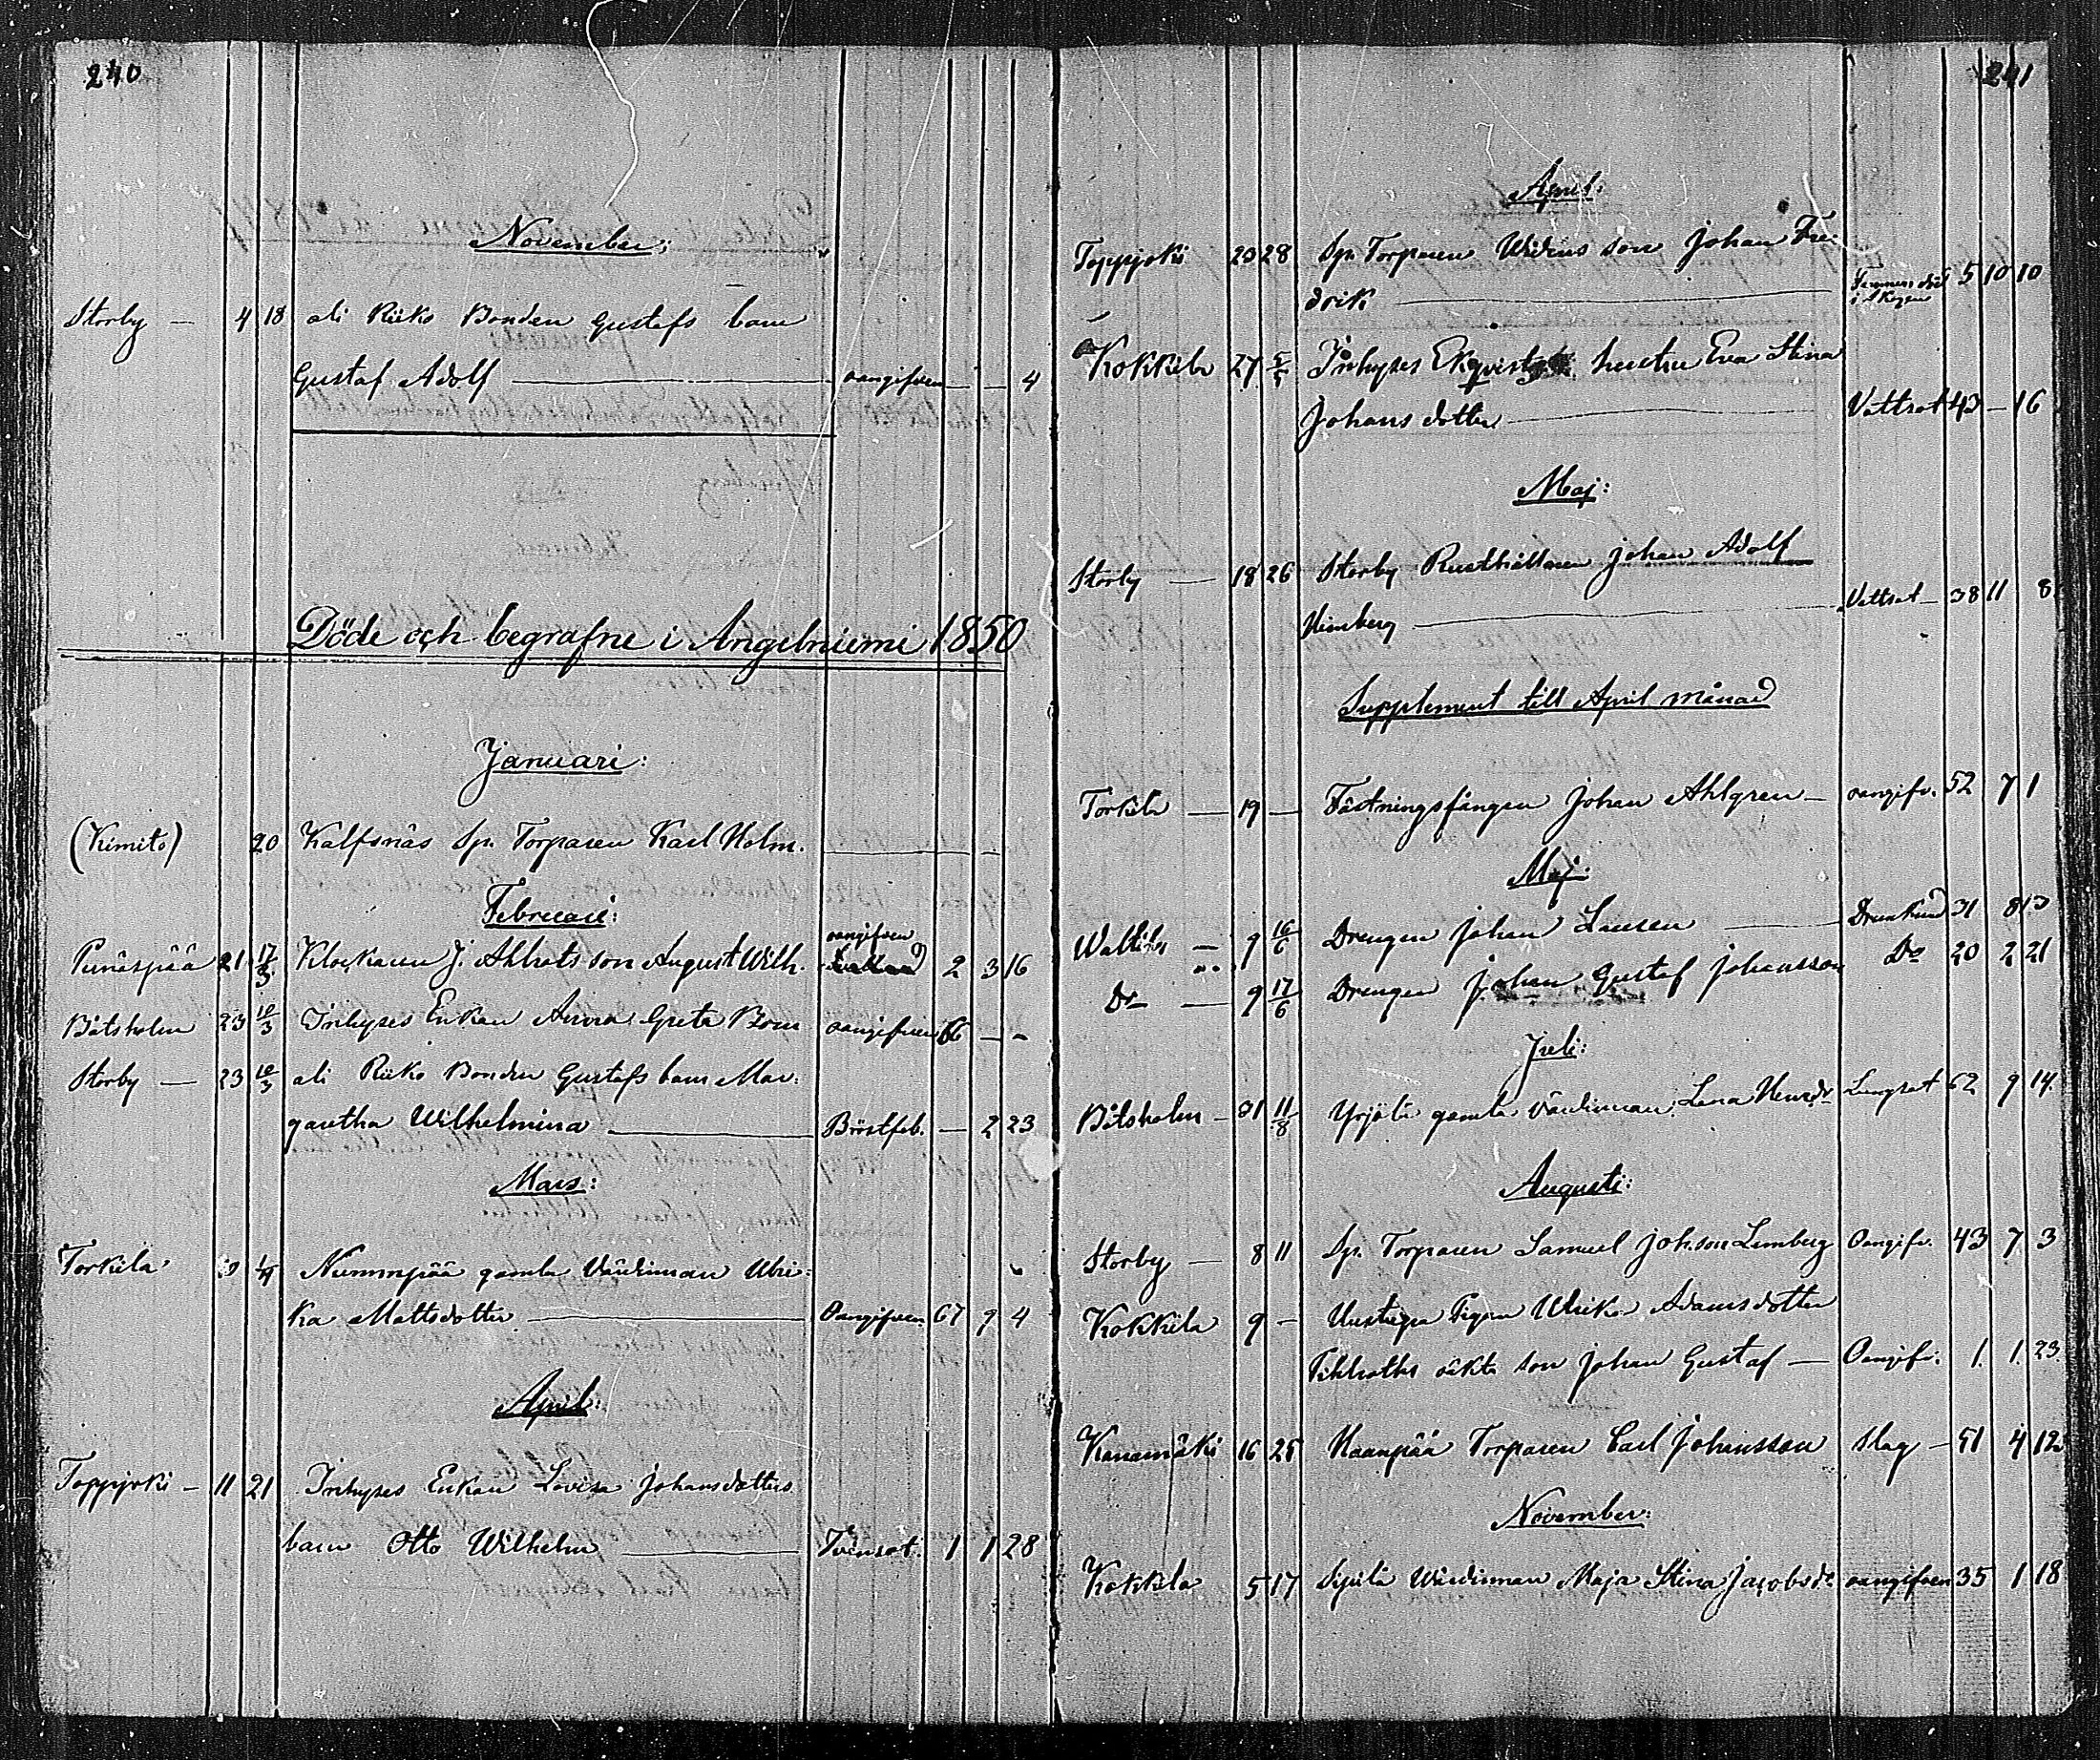 240
November:
Storby — 4 18 ali Riiko Bonden Gustafs barn
Gustaf Adolf — oangifven — — 4
Döde och begrafne i Angelniemi 1850
Januari:
(Kimito) 20 Kalfsnäs Sp. Torparen Karl Holm.
Februari:
oangifven
Punäspää 21 17/3 Klockaren J. Ahlrots son August Wilh. 2 3 16
Båtsholm 23 10/3 Inhyses Enkan Anna Greta Bom oangifven 66 — -
Storby — 23 10/3 ali Riiko Bonden Gustafs barn Mar:
garetha Wilhelmina — Bröstfeb. — 2 23
Mars:
Torkila Nummpää gamla Värdinnan Ulri:
ka Mattsdotter — Oangifven 67 9 4
April:
Toppjoki — 11 21 Inhyses Enkan Lovisa Johansdotters
barn Otto Wilhelm — Tvinsot. 1 1 28
241
April:
Toppjoki 23 28 Sp. Torparen son Johan Fre:
drik — 5 10 10
i skogen
Kokkila 27 5/5 Inhyses Ekqvists hustru Eva Stina
Johansdotter — Vattsot 43 — 16
Maj:
Storby — 18 26 Storby Rusthållaren Johan Adolf
Heinberg — Vattsot — 38 11 8
Supplement till April månad
Torkila — 19 — Fästningsfången Johan Ahlgren — oangifv. 52 7 1
Maj:
9 16/6 Drengen Johan — Drunknad 31 8 13
Do — 9 17/6 Drengen Johan Gustaf Johansson Do 20 2 21
Juli:
Båtsholm — 31 11/8 Yrjölä gamla Värdinnan Lena Henrsdr Lungsot 62 9 14.
Augusti:
Storby — 8 11 Sp. Torparen Samuel Johsson Lemberg Oangifv. 43 7 3
Kokkila 9 — Pigan Ulrika Adamsdotter
äkta son Johan Gustaf — Oangifv. 1. 1. 23.
Kanamäki 16 25 Haanpää Torparen Carl Johansson slag — 51 4 12
November:
Kokkila 5 17 Sipilä Wärdinnan Maja Stina Jacobsdr oangifven 35 1 18